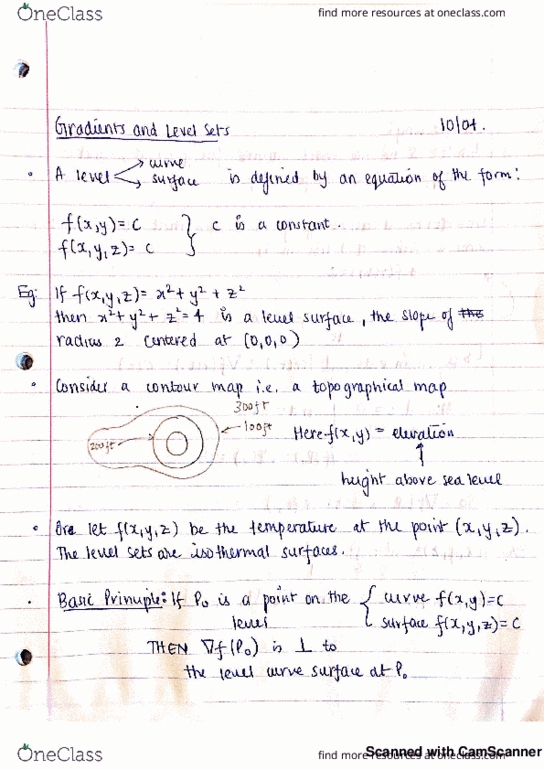 OneClass
find more resources at oneclass.com
Gradients and Level Sets
10/04.
A level curve surface is defined by an equation of the form:
f(x,y) = C
f(x,y,z) = C } C is a constant.
Eg: If f(x,y,z) = x² + y² + z²
then x² + y² + z² = 4 is a level surface, the slope of the
radius 2 centered at (0,0,0)
Consider a contour map i.e. a topographical map
300ft
100ft
200ft
Here f(x,y) = elevation
height above sea level
Ore let f(x,y,z) be the temperature at the point (x,y,z).
The level sets are isothermal surfaces.
Basic Principle: If P₀ is a point on the { curve f(x,y)=C
level { surface f(x,y,z)=C
THEN ∇f(P₀) is ⊥ to
the level curve surface at P₀
OneClass
find more resources at oneclass.com
Scanned with CamScanner